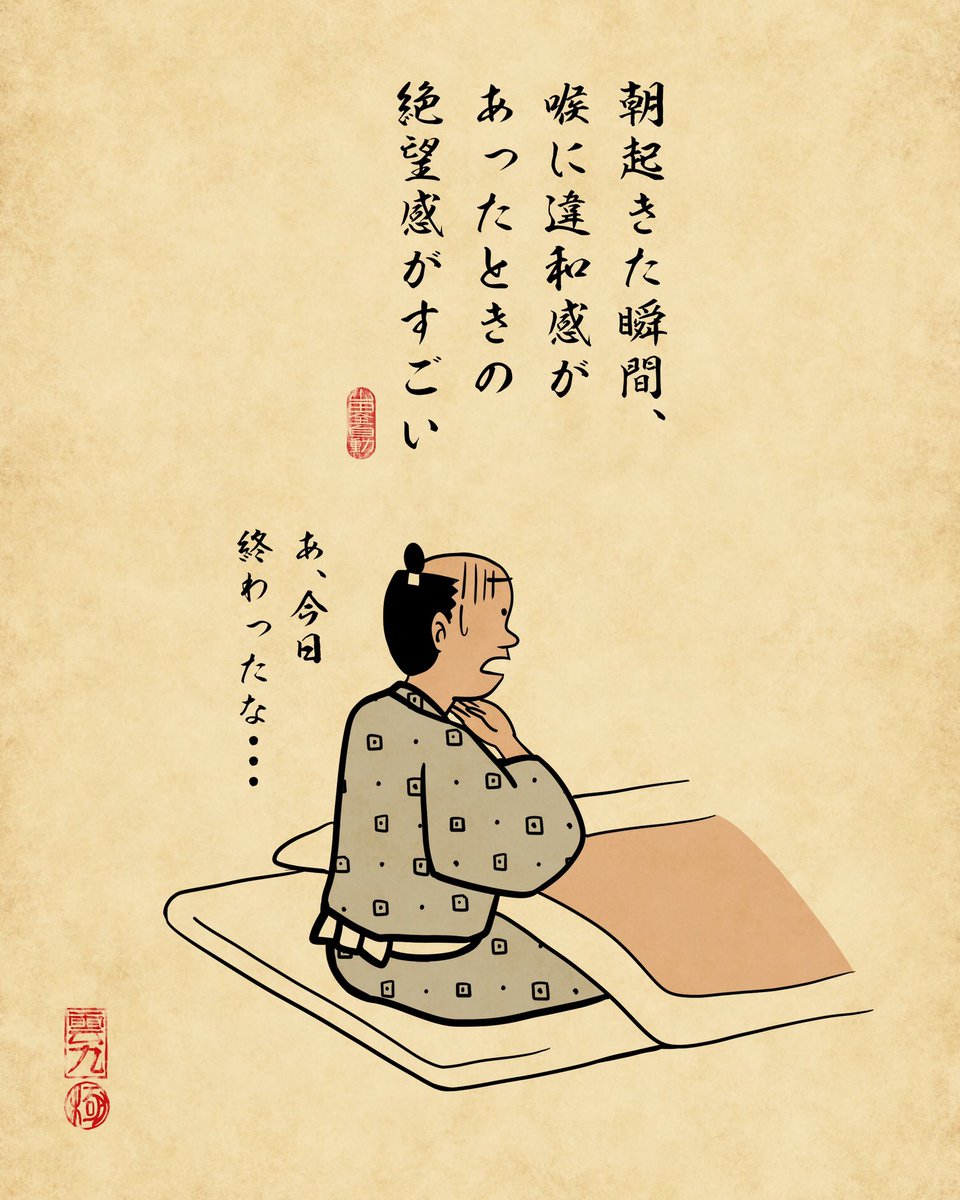 朝起きた瞬間、
喉に違和感が
あったときの
絶望感がすごい
あ、今日
終わったな・・・